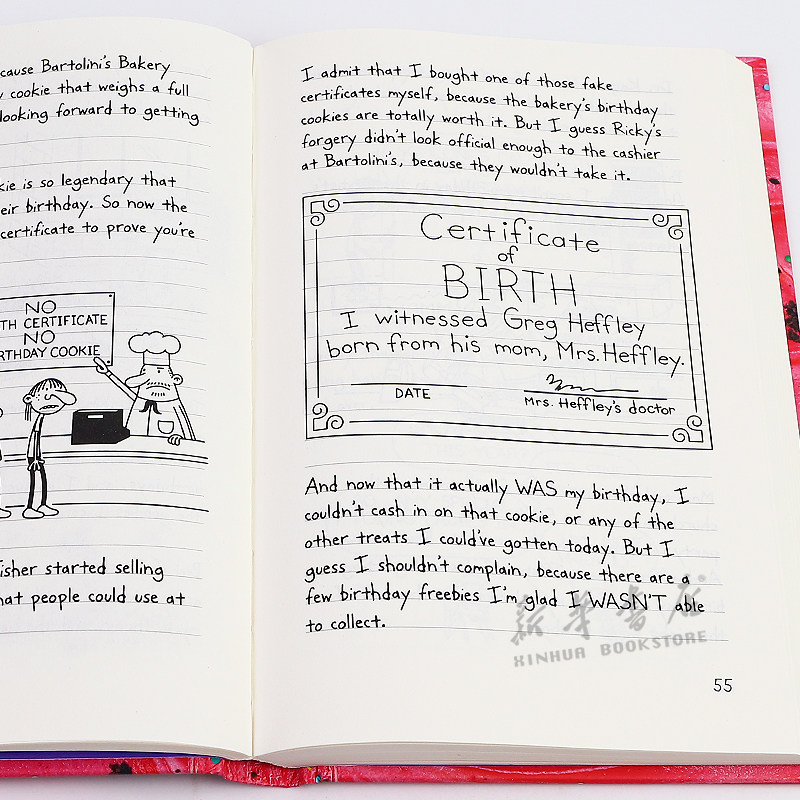 cause Bartolini's Bakery
cookie that weighs a full
looking forward to getting
kie is so legendary that
eir birthday. So now the
certificate to prove you're
NO
TH CERTIFICATE
NO
RTHDAY COOKIE
isher started selling
hat people could use at
I admit that I bought one of those fake
certificates myself, because the bakery's birthday
cookies are totally worth it. But I guess Ricky's
forgery didn't look official enough to the cashier
at Bartolini's, because they wouldn't take it.
Certificate
of
BIRTH
I witnessed Greg Heffley
born from his mom, Mrs. Heffley.
DATE
Mrs. Heffley's doctor
And now that it actually WAS my birthday, I
couldn't cash in on that cookie, or any of the
other treats I could've gotten today. But I
guess I shouldn't complain, because there are a
few birthday freebies I'm glad I WASN'T able
to collect.
新华书店
XINHUA BOOKSTORE
55